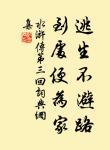 逃生不避路
到處便為家
水滸傳第三回詞典網
集